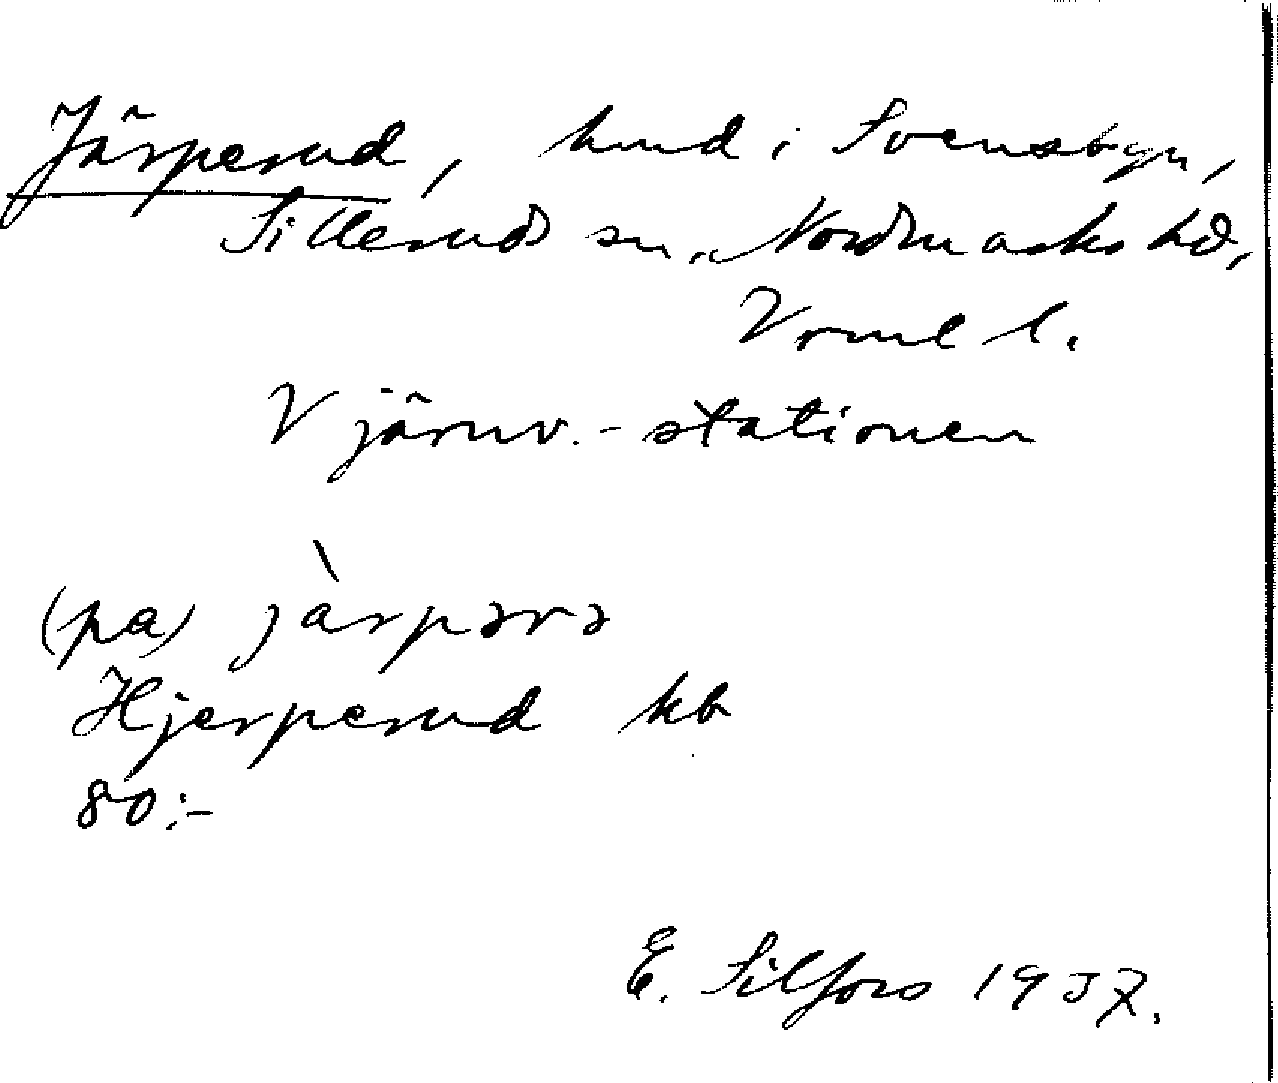 Järperud, hmd i Svensbyn,
Silleruds sn, Nordmarks hd,
Vrml l.
V järnv.-stationen
(pa) jàrpərə
Hjerperud kb
80:-
E. Silfors 1937.